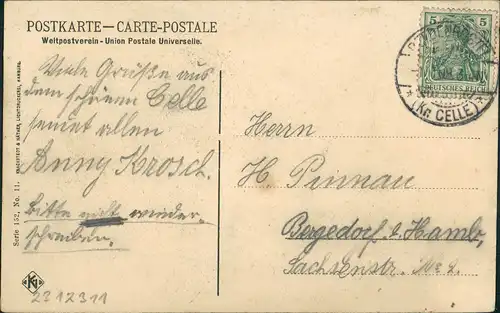 POSTKARTE - CARTE-POSTALE
Weltpostverein - Union Postale Universelle.
Viele Grüße aus
dem schönen Celle
sendet allen
Anny Krosch.
Bitte nicht wieder
schreiben.
Serie 152, No. 11.
KN
2312311
5 5
DEUTSCHES REICH
(Kr. CELLE)
Herrn
H. Pinnau
Bergedorf b. Hamb.
Sachsenstr. No 2.